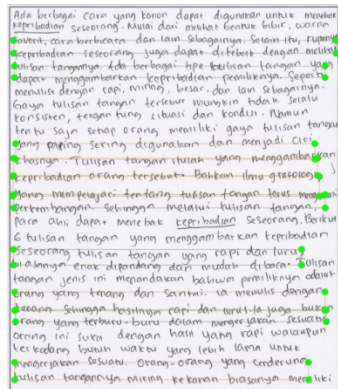 Ada berbagai cara yang konon dapat digunakan untuk menebak
kepribadian seseorang. Mulai dari melihat bentuk bibir, warna
favorit, cara berbicara dan lain sebagainya. Selain itu, rupanya
kepribadian seseorang juga dapat ditebak dengan melihat
tulisan tangannya. Ada berbagai tipe tulisan tangan yang
dapat menggambarkan kepribadian pemiliknya. Seperti
menulis dengan rapi, miring, besar, dan lain sebagainya.
Gaya tulisan tangan tersebut mungkin tidak selalu
konsisten, tergantung situasi dan kondisi. Namun
tentu saja setiap orang memiliki gaya tulisan tangan
yang paling sering digunakan dan menjadi ciri
khasnya. Tulisan tangan itulah yang menggambarkan
kepribadian orang tersebut. Bahkan ilmu grafologi
yang mempelajari tentang tulisan tangan terus
perkembangan. Sehingga melalui tulisan tangan,
para ahli dapat menebak kepribadian seseorang. Berikut
6 tulisan tangan yang menggambarkan kepribadian
seseorang tulisan tangan yang rapi dan lurus
biasanya enak dipandang dan mudah dibaca. Tulisan
tangan jenis ini menandakan bahwa pemiliknya adalah
orang yang tenang dan santai. Ia menulis dengan
tenang sehingga hasilnya rapi dan lurus. Ia juga bukan
orang yang terburu-buru dalam mengerjakan sesuatu
orang ini suka dengan hasil yang rapi walaupun
terkadang butuh waktu yang lebih lama untuk
mengerjakan sesuatu. Orang-orang yang cenderung
tulisan tangannya miring ke kanan biasanya memiliki